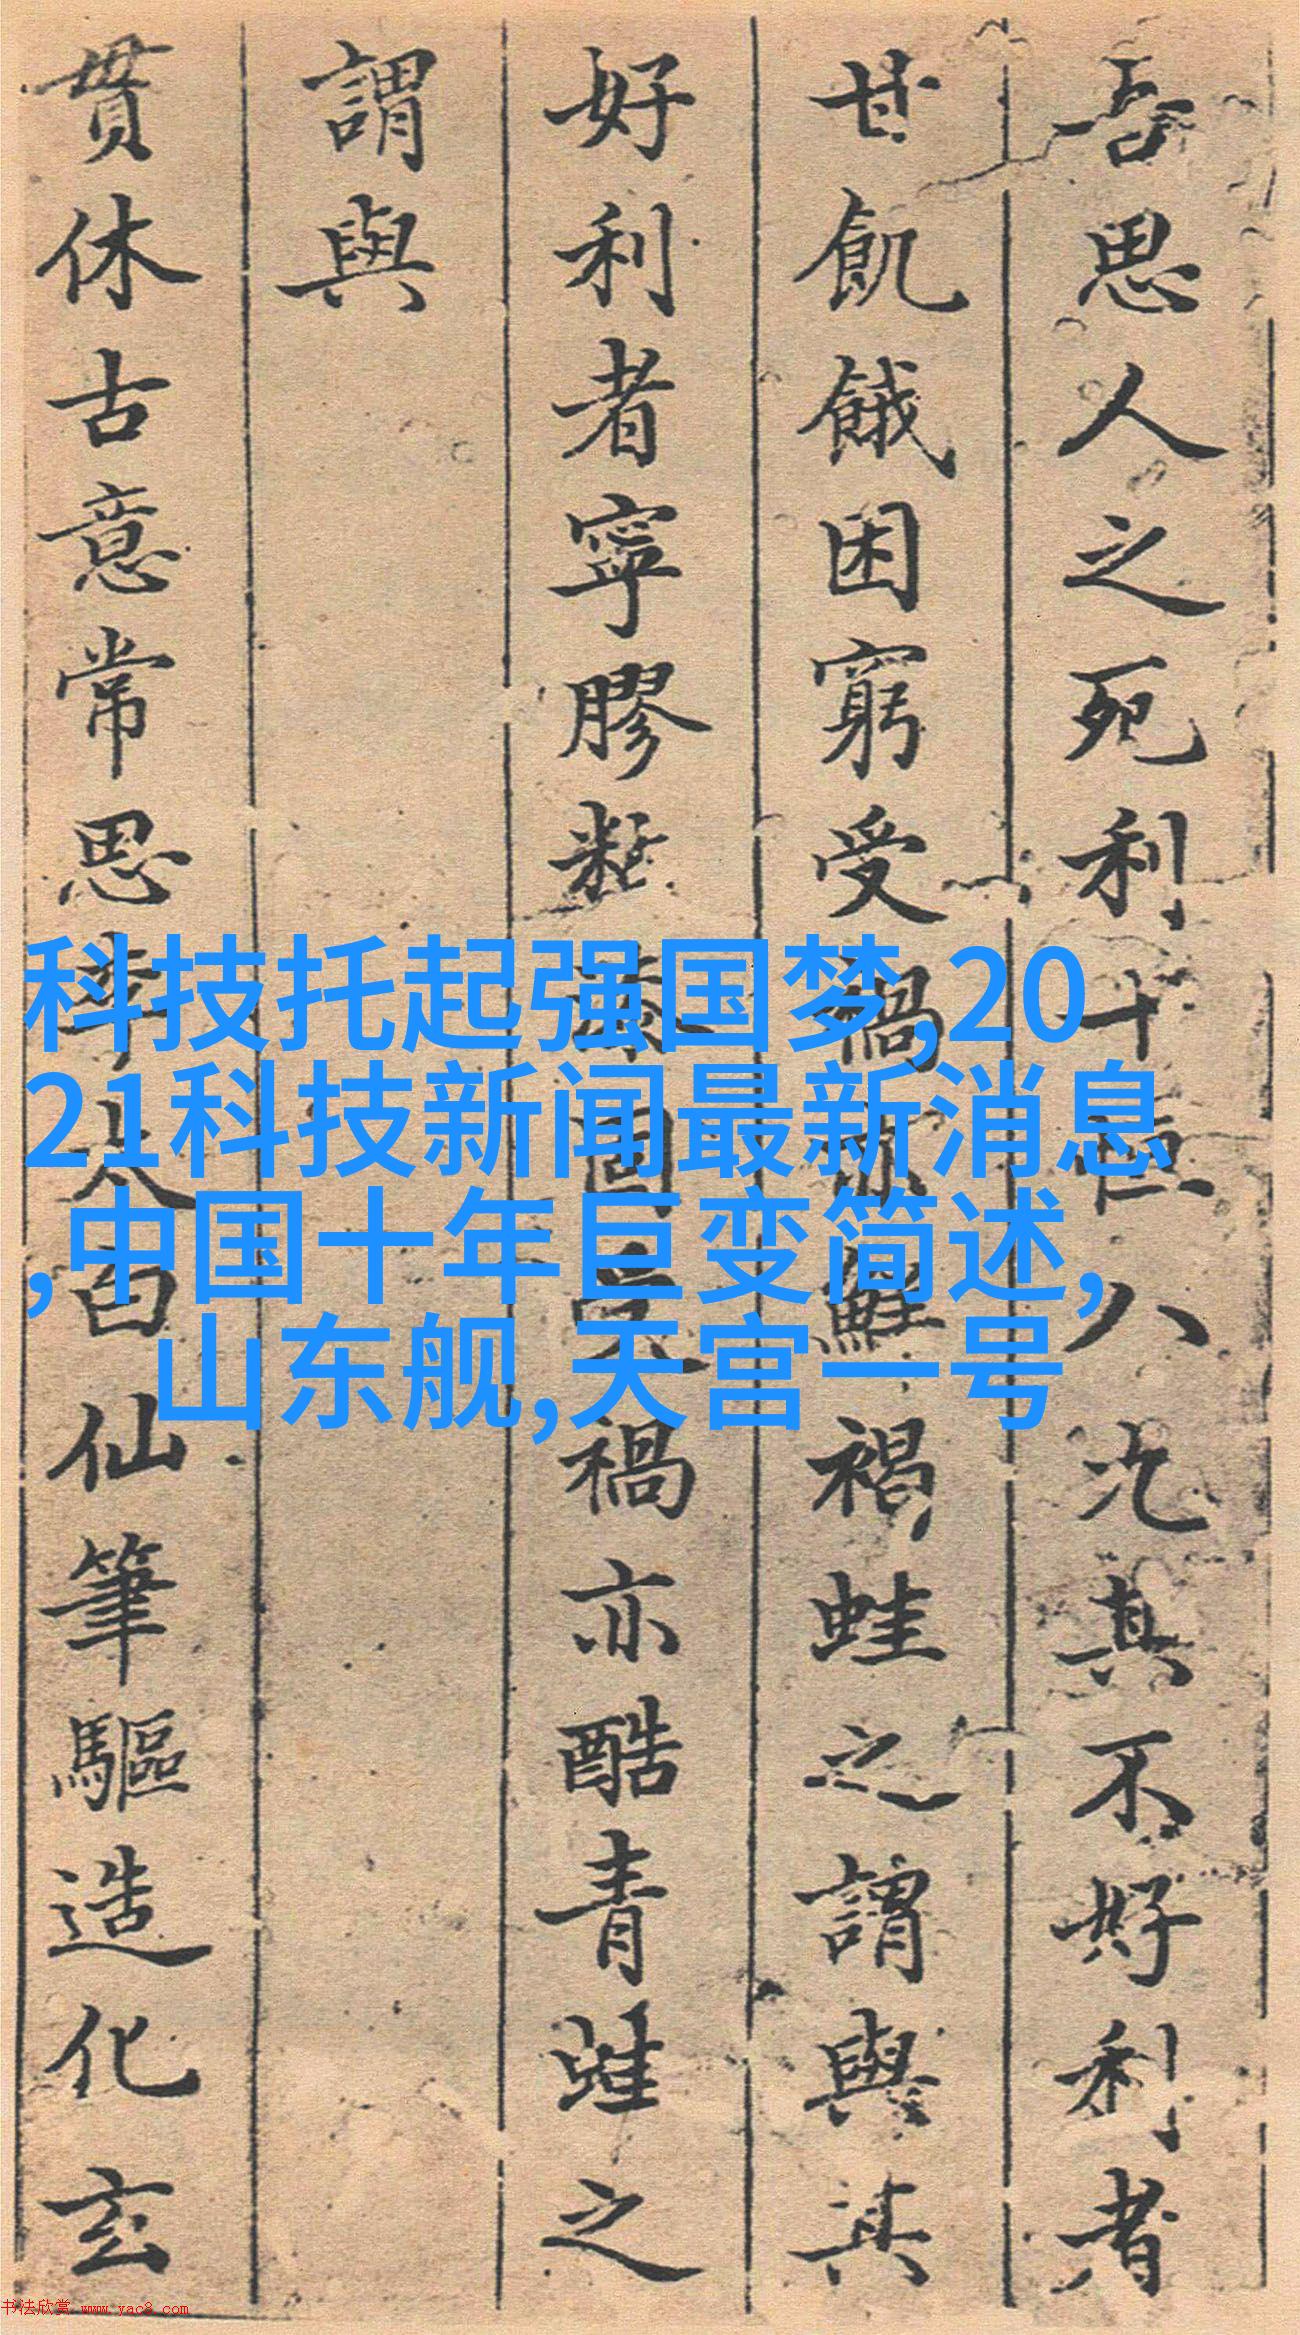 吾思人之死利十恒八九其不好利者
甘飢餓困窮受禍亦鮮禍蛙之謂與其
好利者寧膠黏禍亦酷青蛙之
謂與
貫休古意常思李太白仙筆驅造化玄
科技托起强国梦,20
21科技新闻最新消息
,中国十年巨变简述,
山东舰,天宫一号
书法欣赏 www.yac8.com